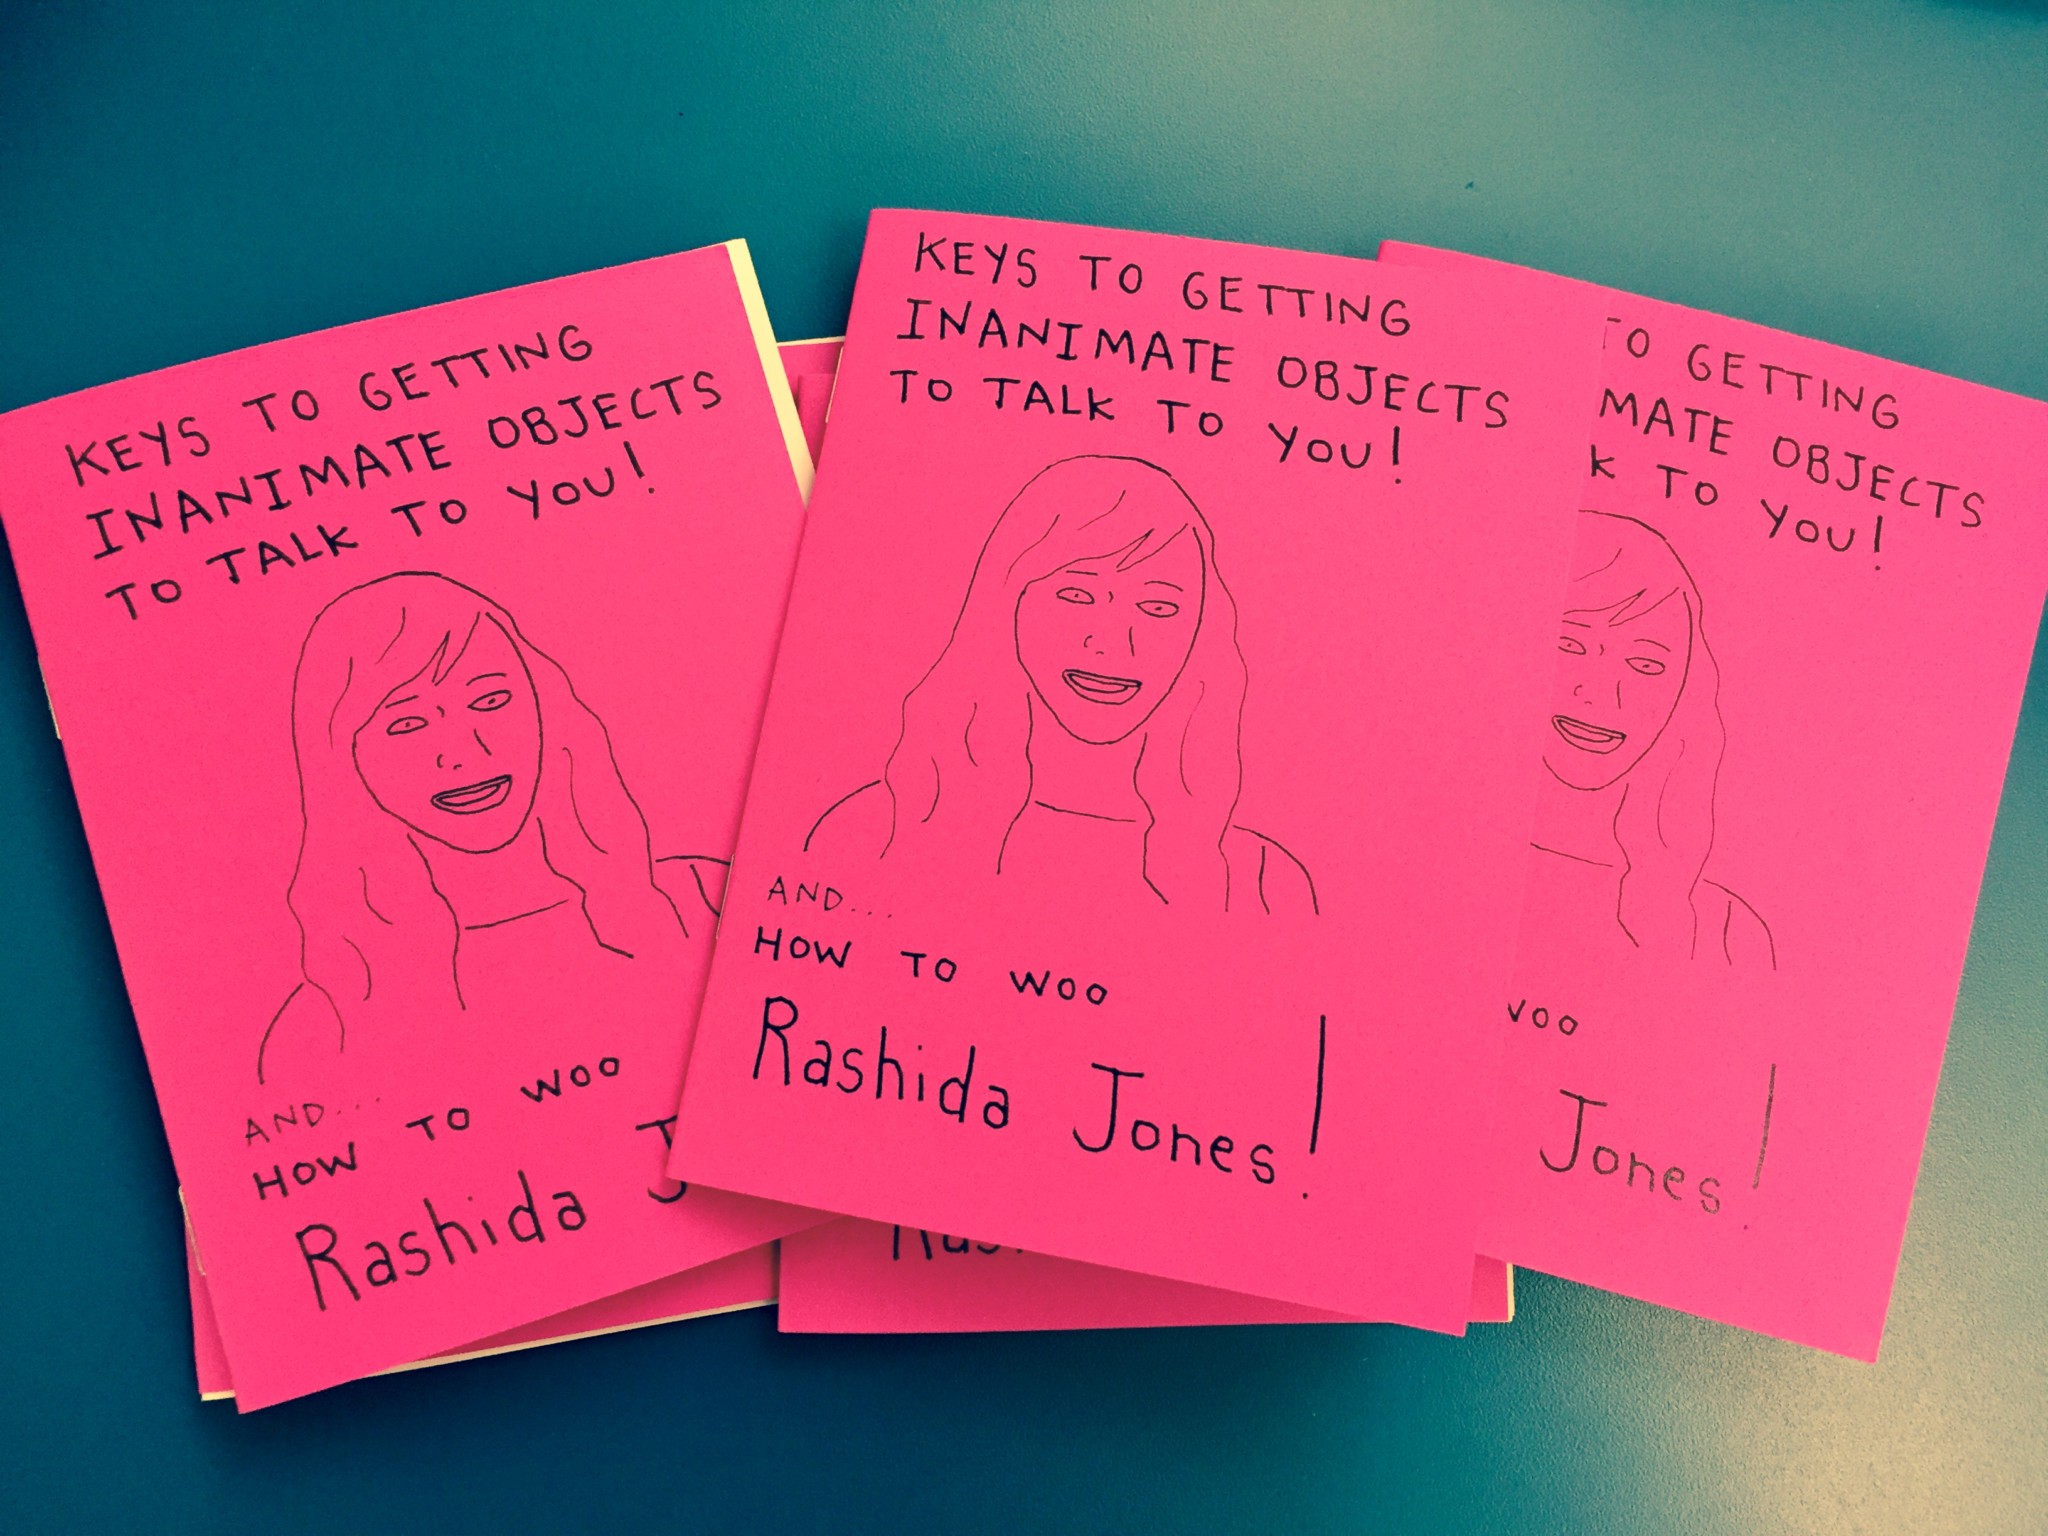 KEYS TO GETTING
INANIMATE OBJECTS
TO TALK TO YOU!
AND...
HOW TO WOO
Rashida J
KEYS TO GETTING
INANIMATE OBJECTS
TO TALK TO YOU!
AND...
HOW TO WOO
Rashida Jones!
TO GETTING
MATE OBJECTS
K TO YOU!
WOO
Jones!
Ras